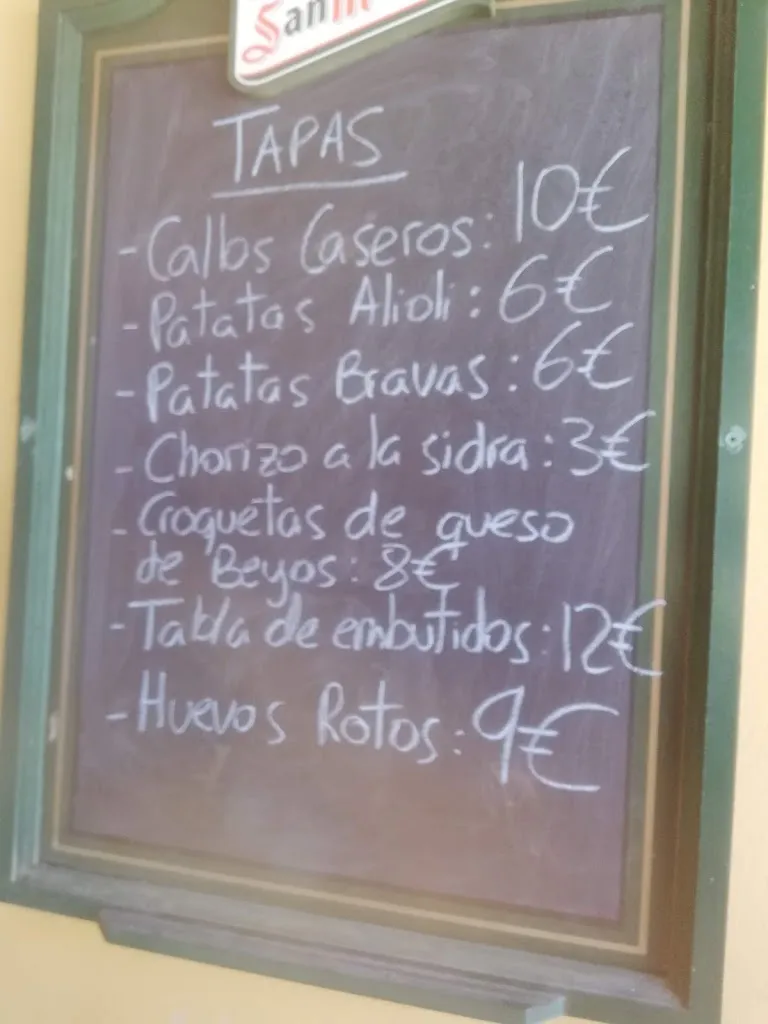 San
TAPAS
- Callos Caseros: 10€
- Patatas Alioli: 6€
- Patatas Bravas: 6€
- Chorizo a la sidra: 3€
- Croquetas de queso
de Beyos: 8€
- Tabla de embutidos: 12€
- Huevos Rotos: 9€